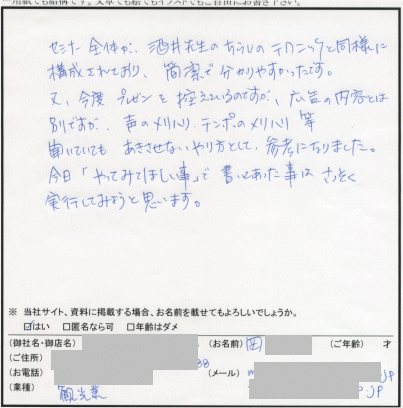 一用紙でも結構です。文章でも絵でもイラストでもご自由にお書き下さい。
セミナー全体が、酒井先生のちらしのテクニックと同様に
構成されており、簡潔で分かりやすかったです。
又、今度プレゼンを控えているのですが、広告の内容とは
別ですが、声のメリハリ、テンポのメリハリ 等
聞いていても あきさせないやり方として、参考になりました。
今日「やってみてほしい事」で書いてあった事は さっそく
実行してみようと思います。
※ 当社サイト、資料に掲載する場合、お名前を載せてもよろしいでしょうか。
☑はい □匿名なら可 □年齢はダメ
(御社名・御店名) (お名前) 岡 (ご年齢) 才
(ご住所) 38
(お電話) (メール) m jp
(業種) 観光業 p.jp